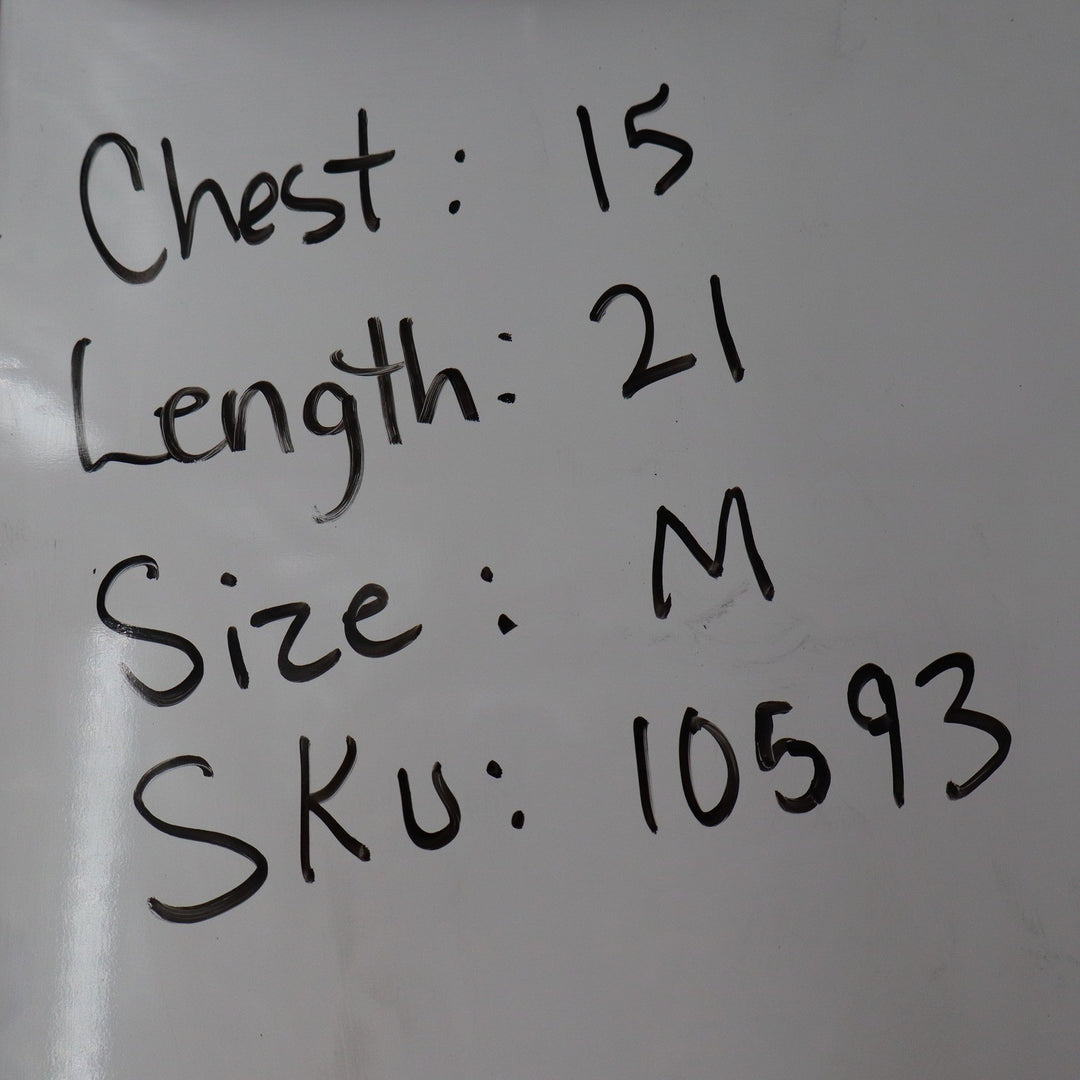 Chest: 15
Length: 21
Size: M
SKU: 10593